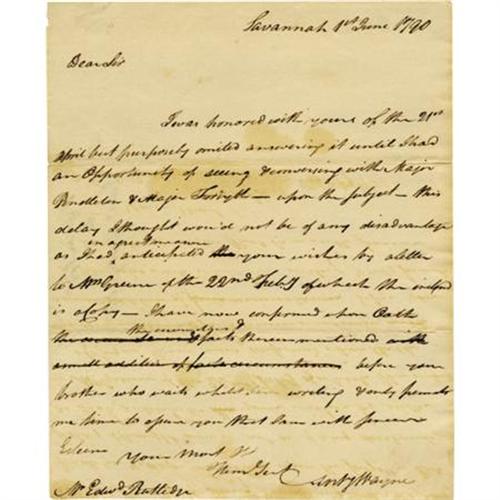 Savannah 1st June 1790
Dear Sir
I was honored with yours of the 21st
April but purposely omited answering it until I had
an Opportunity of seeing & conversing with Major
Pendleton & Major Forsyth — upon the subject — this
delay I thought wou'd not be of any disadvantage
in a great measure
as I had anticipated the your wishes by a letter
to Mrs Greene of the 22nd Feby of which the inclosed
is a Copy — I have now confirmed upon Oath
the
the facts therein mentioned with
a small addition of facts & circumstances before your
brother who waits whilst I am writing & only permits
me time to assure you that I am with sincere
Esteem
Your Most Ob
Hum Sert
Anty Wayne
Mr Edwd Rutledge